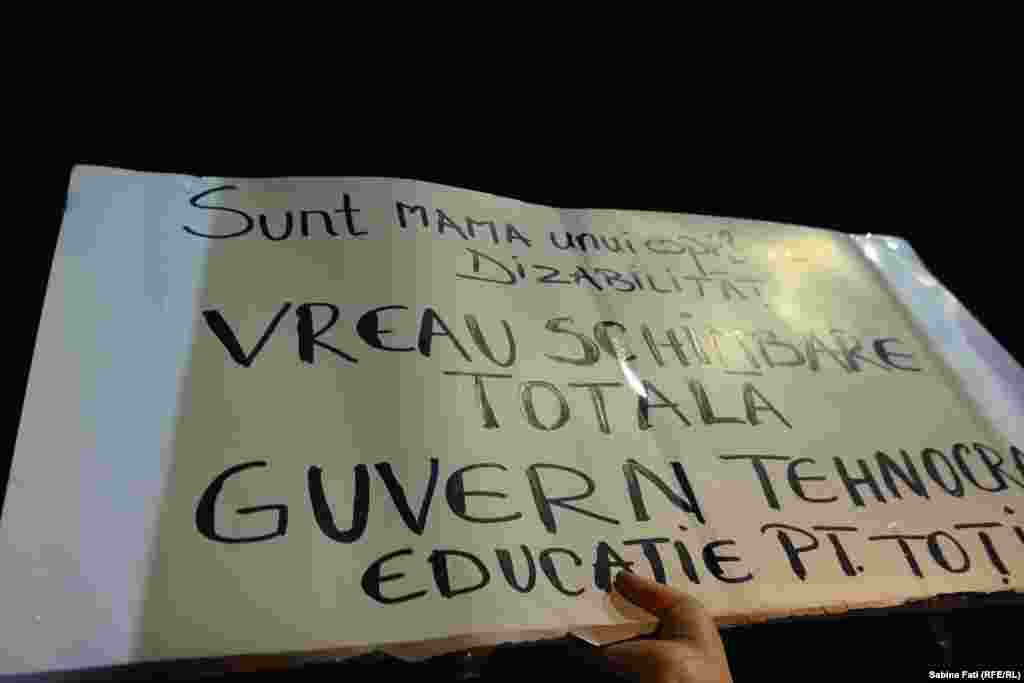 Sunt MAMA unui copil
DIZABILITAT
VREAU SCHIMBARE
TOTALA
GUVERN TEHNOCRA
EDUCAȚIE PT. TOȚI
Sabina Fati (RFE/RL)